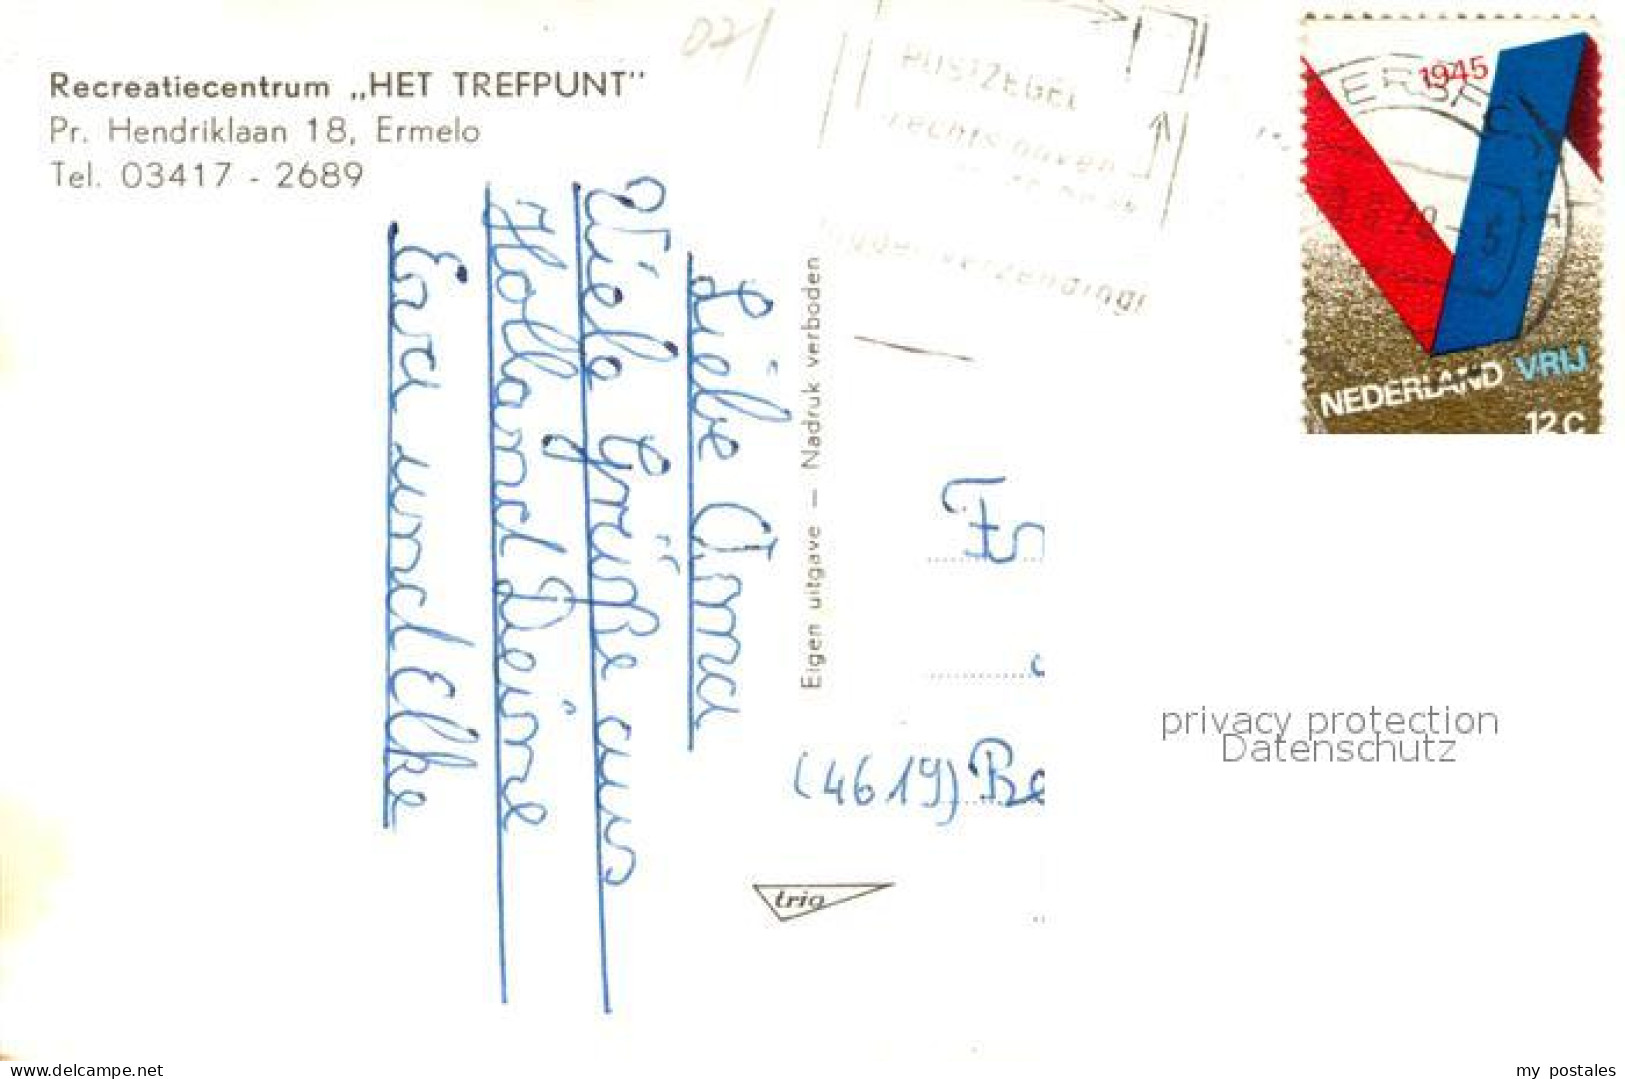 Recreatiecentrum „HET TREFPUNT"
Pr. Hendriklaan 18, Ermelo
Tel. 03417 - 2689
071
POSTZEGEL
rechts boven
verzending
1945
NEDERLAND VRIJ
12C
Liebe Oma
Viele Grüße aus
Holland Deine
Eva und Elke
Eigen uitgave — Nadruk verboden
(4619) Be
trio
privacy protection
Datenschutz
www.delcampe.net
my_postales